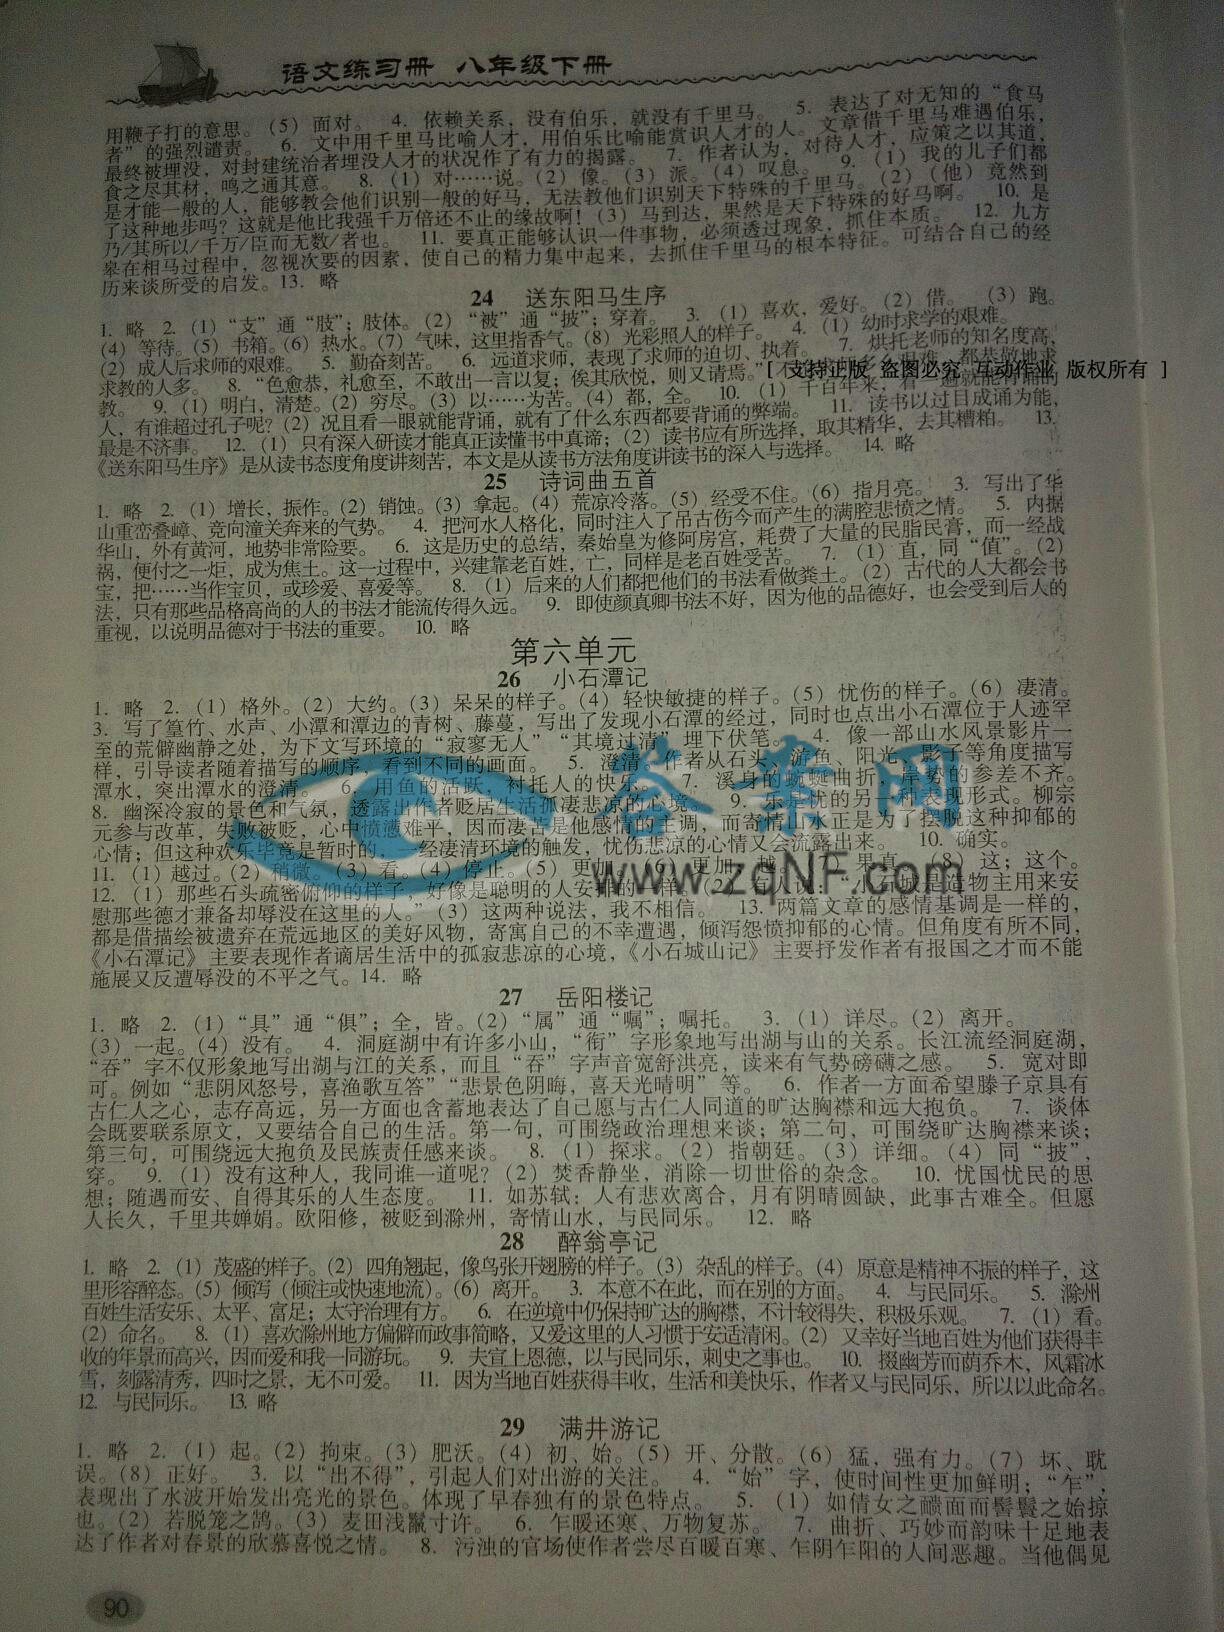 语文练习册 八年级下册
用鞭子打的意思。（5）面对。 4. 依赖关系，没有伯乐，就没有千里马。 5. 表达了对无知的“食马
者”的强烈谴责。 6. 文中用千里马比喻人才，用伯乐比喻能赏识人才的人。文章借千里马难遇伯乐，
最终被埋没，对封建统治者埋没人才的状况作了有力的揭露。 7. 作者认为，对待人才，应策之以其道，
食之尽其材，鸣之通其意。 8.（1）对……说。（2）像。（3）派。（4）叹息。 9.（1）我的儿子们都
是才能一般的人，能够教会他们识别一般的好马，无法教他们识别天下特殊的千里马。（2）（他）竟然到
了这种地步吗？这就是他比我强千万倍还不止的缘故啊！（3）马到达，果然是天下特殊的好马啊。 10. 是
乃/其所以/千万/臣而无数/者也。 11. 要真正能够认识一件事物，必须透过现象，抓住本质。 12. 九方
皋在相马过程中，忽视次要的因素，使自己的精力集中起来，去抓住千里马的根本特征。可结合自己的经
历来谈所受的启发。13. 略
24 送东阳马生序
1. 略 2.（1）“支”通“肢”；肢体。（2）“被”通“披”；穿着。 3.（1）喜欢，爱好。（2）借。（3）跑。
（4）等待。（5）书箱。（6）热水。（7）气味，这里指香气。（8）光彩照人的样子。 4.（1）幼时求学的艰难。
（2）成人后求师的艰难。 5. 勤奋刻苦。 6. 远道求师，表现了求师的迫切、执着。 7. 烘托老师的知名度高，
求教的人多。 8. “色愈恭，礼愈至，不敢出一言以复；俟其欣悦，则又请焉。”
[ 支持正版 盗图必究 互动作业 版权所有 ]
教。 9.（1）明白，清楚。（2）穷尽。（3）以……为苦。（4）都，全。 10.（1）千百年来，看一遍就能背诵的
人，有谁超过孔子呢？（2）况且看一眼就能背诵，就有了什么东西都要背诵的弊端。 11. 读书以过目成诵为能，
最是不济事。 12.（1）只有深入研读才能真正读懂书中真谛；（2）读书应有所选择，取其精华，去其糟粕。 13.
《送东阳马生序》是从读书态度角度讲刻苦，本文是从读书方法角度讲读书的深入与选择。 14. 略
25 诗词曲五首
1. 略 2.（1）增长，振作。（2）销蚀。（3）拿起。（4）荒凉冷落。（5）经受不住。（6）指月亮。 3. 写出了华
山重峦叠嶂、竞向潼关奔来的气势。 4. 把河水人格化，同时注入了吊古伤今而产生的满腔悲愤之情。 5. 内据
华山，外有黄河，地势非常险要。 6. 这是历史的总结，秦始皇为修阿房宫，耗费了大量的民脂民膏，而一经战
祸，便付之一炬，成为焦土。这一过程中，兴建靠老百姓，亡，同样是老百姓受苦。 7.（1）直，同“值”。（2）
宝，把……当作宝贝，或珍爱、喜爱等。 8.（1）后来的人们都把他们的书法看做粪土。（2）古代的人大都会书
法，只有那些品格高尚的人的书法才能流传得久远。 9. 即使颜真卿书法不好，因为他的品德好，也会受到后人的
重视，以说明品德对于书法的重要。 10. 略
第六单元
26 小石潭记
1. 略 2.（1）格外。（2）大约。（3）呆呆的样子。（4）轻快敏捷的样子。（5）忧伤的样子。（6）凄清。
3. 写了篁竹、水声、小潭和潭边的青树、藤蔓，写出了发现小石潭的经过，同时也点出小石潭位于人迹罕
至的荒僻幽静之处，为下文写环境的“寂寥无人”“其境过清”埋下伏笔。 4. 像一部山水风景影片一
样，引导读者随着描写的顺序，看到不同的画面。 5. 澄清。作者从石头、游鱼、阳光、影子等角度描写
潭水，突出潭水的澄清。 6. 用鱼的活跃，衬托人的快乐。 7. 溪身的蜿蜒曲折，岸势的参差不齐。
8. 幽深冷寂的景色和气氛，透露出作者贬居生活孤凄悲凉的心境。 9. 乐是忧的另一种表现形式。柳宗
元参与改革，失败被贬，心中愤懑难平，因而凄苦是他感情的主调，而寄情山水正是为了摆脱这种抑郁的
心情；但这种欢乐毕竟是暂时的，一经凄清环境的触发，忧伤悲凉的心情又会流露出来。 10. 确实。
11.（1）越过。（2）稍微。（3）看。（4）停止。（5）更加。（6）更加，越。（7）果真。（8）这；这个。
12.（1）那些石头疏密俯仰的样子，好像是聪明的人安排的一样。（2）有人说：“小石城是造物主用来安
慰那些德才兼备却辱没在这里的人。”（3）这两种说法，我不相信。 13. 两篇文章的感情基调是一样的，
都是借描绘被遗弃在荒远地区的美好风物，寄寓自己的不幸遭遇，倾泻怨愤抑郁的心情。但角度有所不同，
《小石潭记》主要表现作者谪居生活中的孤寂悲凉的心境，《小石城山记》主要抒发作者有报国之才而不能
施展又反遭辱没的不平之气。14. 略
答案网
www.zqNF.com
27 岳阳楼记
1. 略 2.（1）“具”通“俱”；全，皆。（2）“属”通“嘱”；嘱托。 3.（1）详尽。（2）离开。
（3）一起。（4）没有。 4. 洞庭湖中有许多小山，“衔”字形象地写出湖与山的关系。长江流经洞庭湖，
“吞”字不仅形象地写出湖与江的关系，而且“吞”字声音宽舒洪亮，读来有气势磅礴之感。 5. 宽对即
可。例如“悲阴风怒号，喜渔歌互答”“悲景色阴晦，喜天光晴明”等。 6. 作者一方面希望滕子京具有
古仁人之心，志存高远，另一方面也含蓄地表达了自己愿与古仁人同道的旷达胸襟和远大抱负。 7. 谈体
会既要联系原文，又要结合自己的生活。第一句，可围绕政治理想来谈；第二句，可围绕旷达胸襟来谈；
第三句，可围绕远大抱负及民族责任感来谈。 8.（1）探求。（2）指朝廷。（3）详细。（4）同“披”，
穿。 9.（1）没有这种人，我同谁一道呢？（2）焚香静坐，消除一切世俗的杂念。 10. 忧国忧民的思
想；随遇而安、自得其乐的人生态度。 11. 如苏轼：人有悲欢离合，月有阴晴圆缺，此事古难全。但愿
人长久，千里共婵娟。欧阳修，被贬到滁州，寄情山水，与民同乐。 12. 略
28 醉翁亭记
1. 略 2.（1）茂盛的样子。（2）四角翘起，像鸟张开翅膀的样子。（3）杂乱的样子。（4）原意是精神不振的样子，这
里形容醉态。（5）倾泻（倾注或快速地流）。（6）离开。 3. 本意不在此，而在别的方面。 4. 与民同乐。 5. 滁州
百姓生活安乐、太平、富足；太守治理有方。 6. 在逆境中仍保持旷达的胸襟，不计较得失，积极乐观。 7.（1）看。
（2）命名。 8.（1）喜欢滁州地方偏僻而政事简略，又爱这里的人习惯于安适清闲。（2）又幸好当地百姓为他们获得丰
收的年景而高兴，因而爱和我一同游玩。 9. 夫宣上恩德，以与民同乐，刺史之事也。 10. 掇幽芳而荫乔木，风霜冰
雪，刻露清秀，四时之景，无不可爱。 11. 因为当地百姓获得丰收，生活和美快乐，作者又与民同乐，所以以此命名。
12. 与民同乐。 13. 略
29 满井游记
1. 略 2.（1）起。（2）拘束。（3）肥沃。（4）初、始。（5）开、分散。（6）猛，强有力。（7）坏、耽
误。（8）正好。 3. 以“出不得”，引起人们对出游的关注。 4. “始”字，使时间性更加鲜明；“乍”，
表现出了水波开始发出亮光的景色。体现了早春独有的景色特点。 5.（1）如倩女之靧面而髻鬟之始掠
也。（2）若脱笼之鹄。（3）麦田浅鬣寸许。 6. 乍暖还寒、万物复苏。 7. 曲折、巧妙而韵味十足地表
达了作者对春景的欣慕喜悦之情。 8. 污浊的官场使作者尝尽百暖百寒、乍阴乍阳的人间恶趣。当他偶见
90